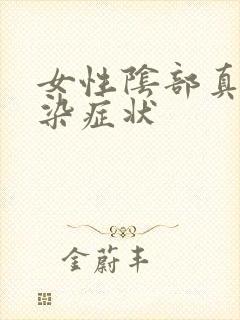 女性陰部真
染症状
金蔚丰